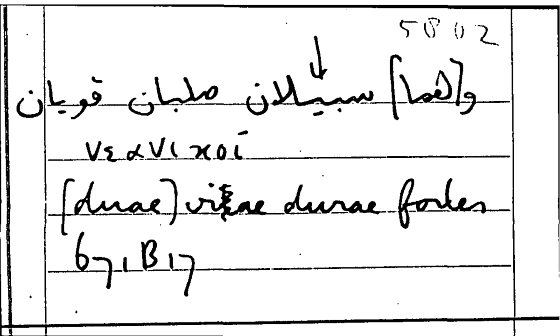 5802
و[هما] سبيلان صلبان قويان
νεανικοί
[duae] viae durae fortes
67, B 17